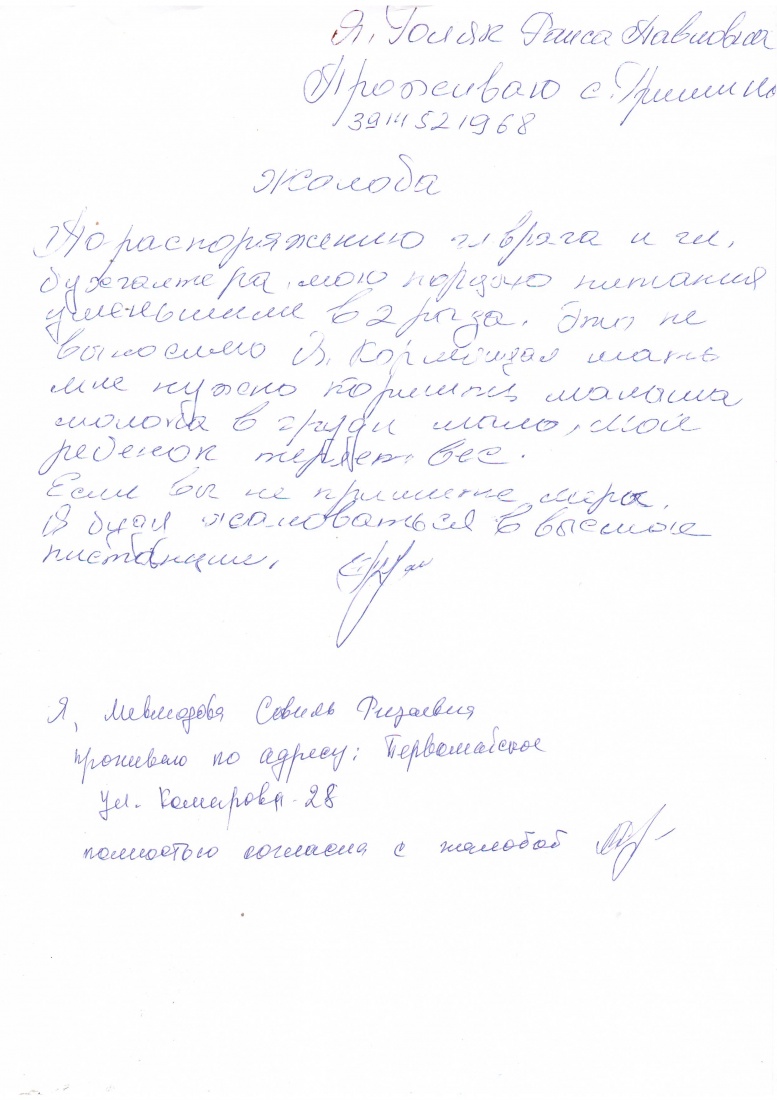 Я, Раиса Павловна
Проживаю с.
3914521968
Жолоба
По распоряжению гл врача и гл.
бухгалтера, мою порцию питания
уменьшили в 2 раза. Это не
выносимо Я, Кормящая мать
мне нужно кормить малыша
молока в груди мало, мой
ребенок теряет вес.
Если вы не примите меры,
Я буду жаловаться в высшие
инстанции,
Я,
проживаю по адресу: Первомайское
ул. Комарова-28
полностью согласна с жалобой